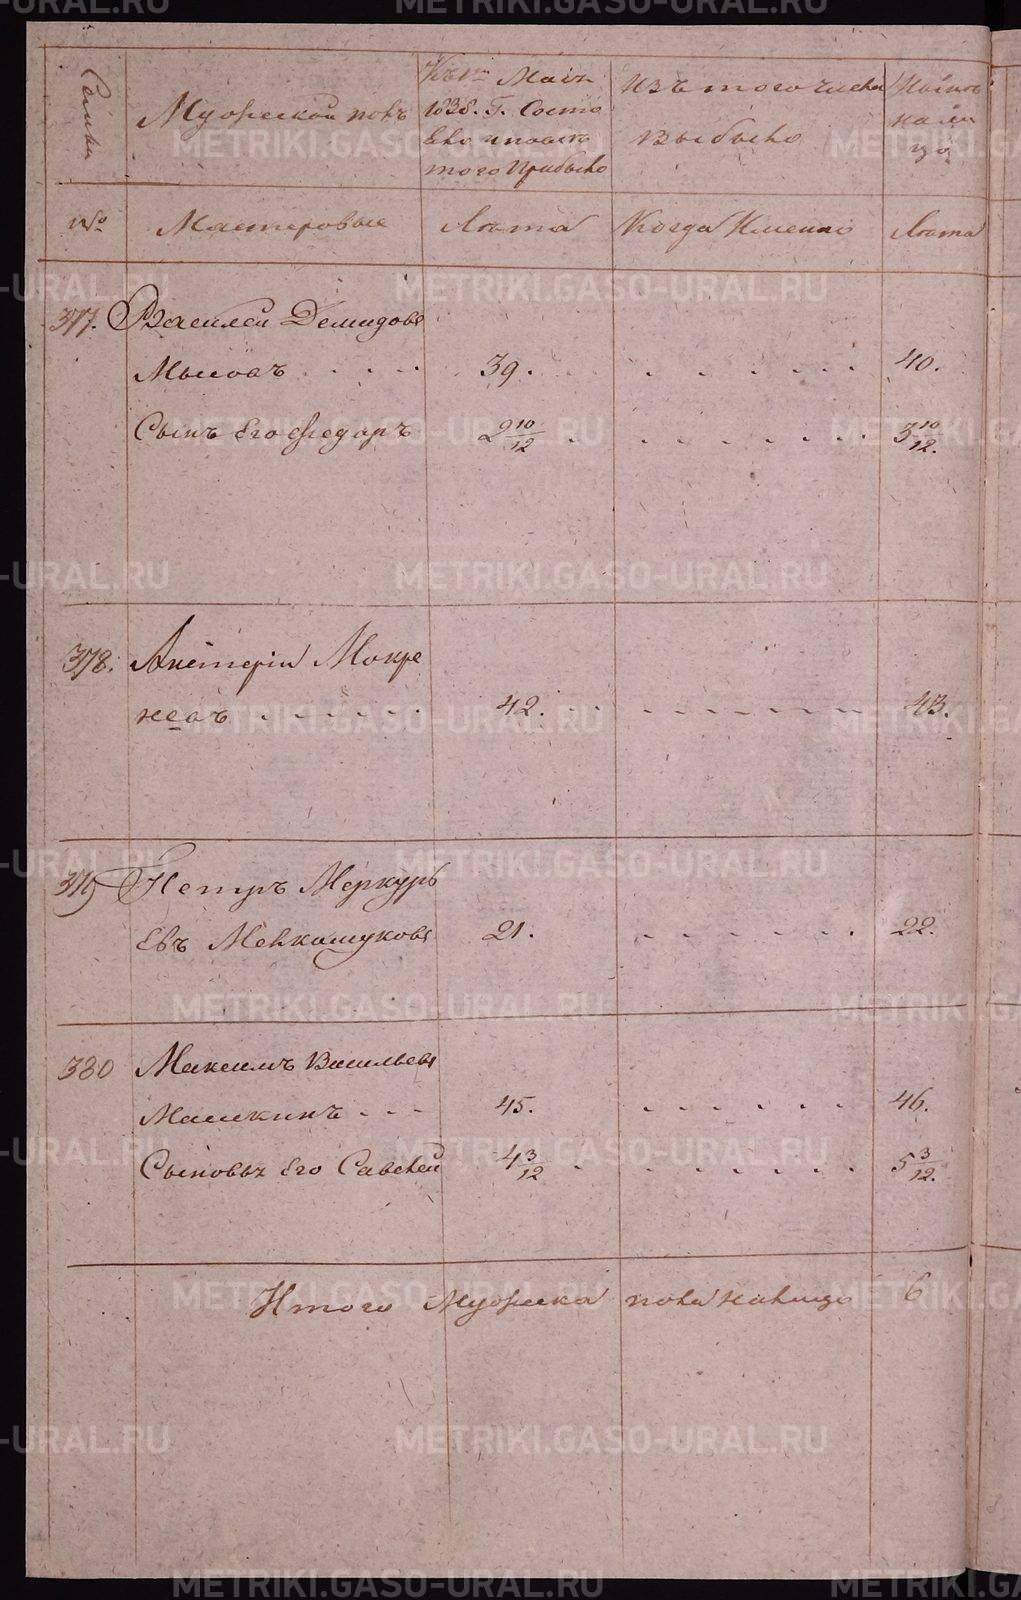 Семьи
Мужескои полъ
Къ 1е Маiя
1838. Г. Состо
яло и после
того прибыло
Изъ того числа
выбыло
Ныне
на ли
цо
№
Мастеровые
Лета
Когда Именно
Лета
377. Василеи Демидовъ
Мысовъ . . . . 39. . . . . . . 40.
Сынъ Его Федоръ 2 10/12 . . . . . . . 3 10/12.
378. Мокре
невъ . . . . . . 42. . . . . . . . . 43.
379 Петръ Меркурь
евъ Мелкашуковъ 21. . . . . . . 22.
380 Максимъ Васильевъ
Машкинъ . . . 45. . . . . . . 46.
Сыновья Его Савелеи 4 3/12 . . . . . . . 5 3/12.
Итого Мужеска пола налицо 6
METRIKI.GASO-URAL.RU